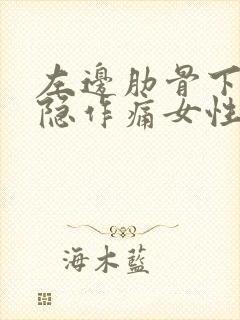 左邊肋骨下
隐作痛女性
海木藍